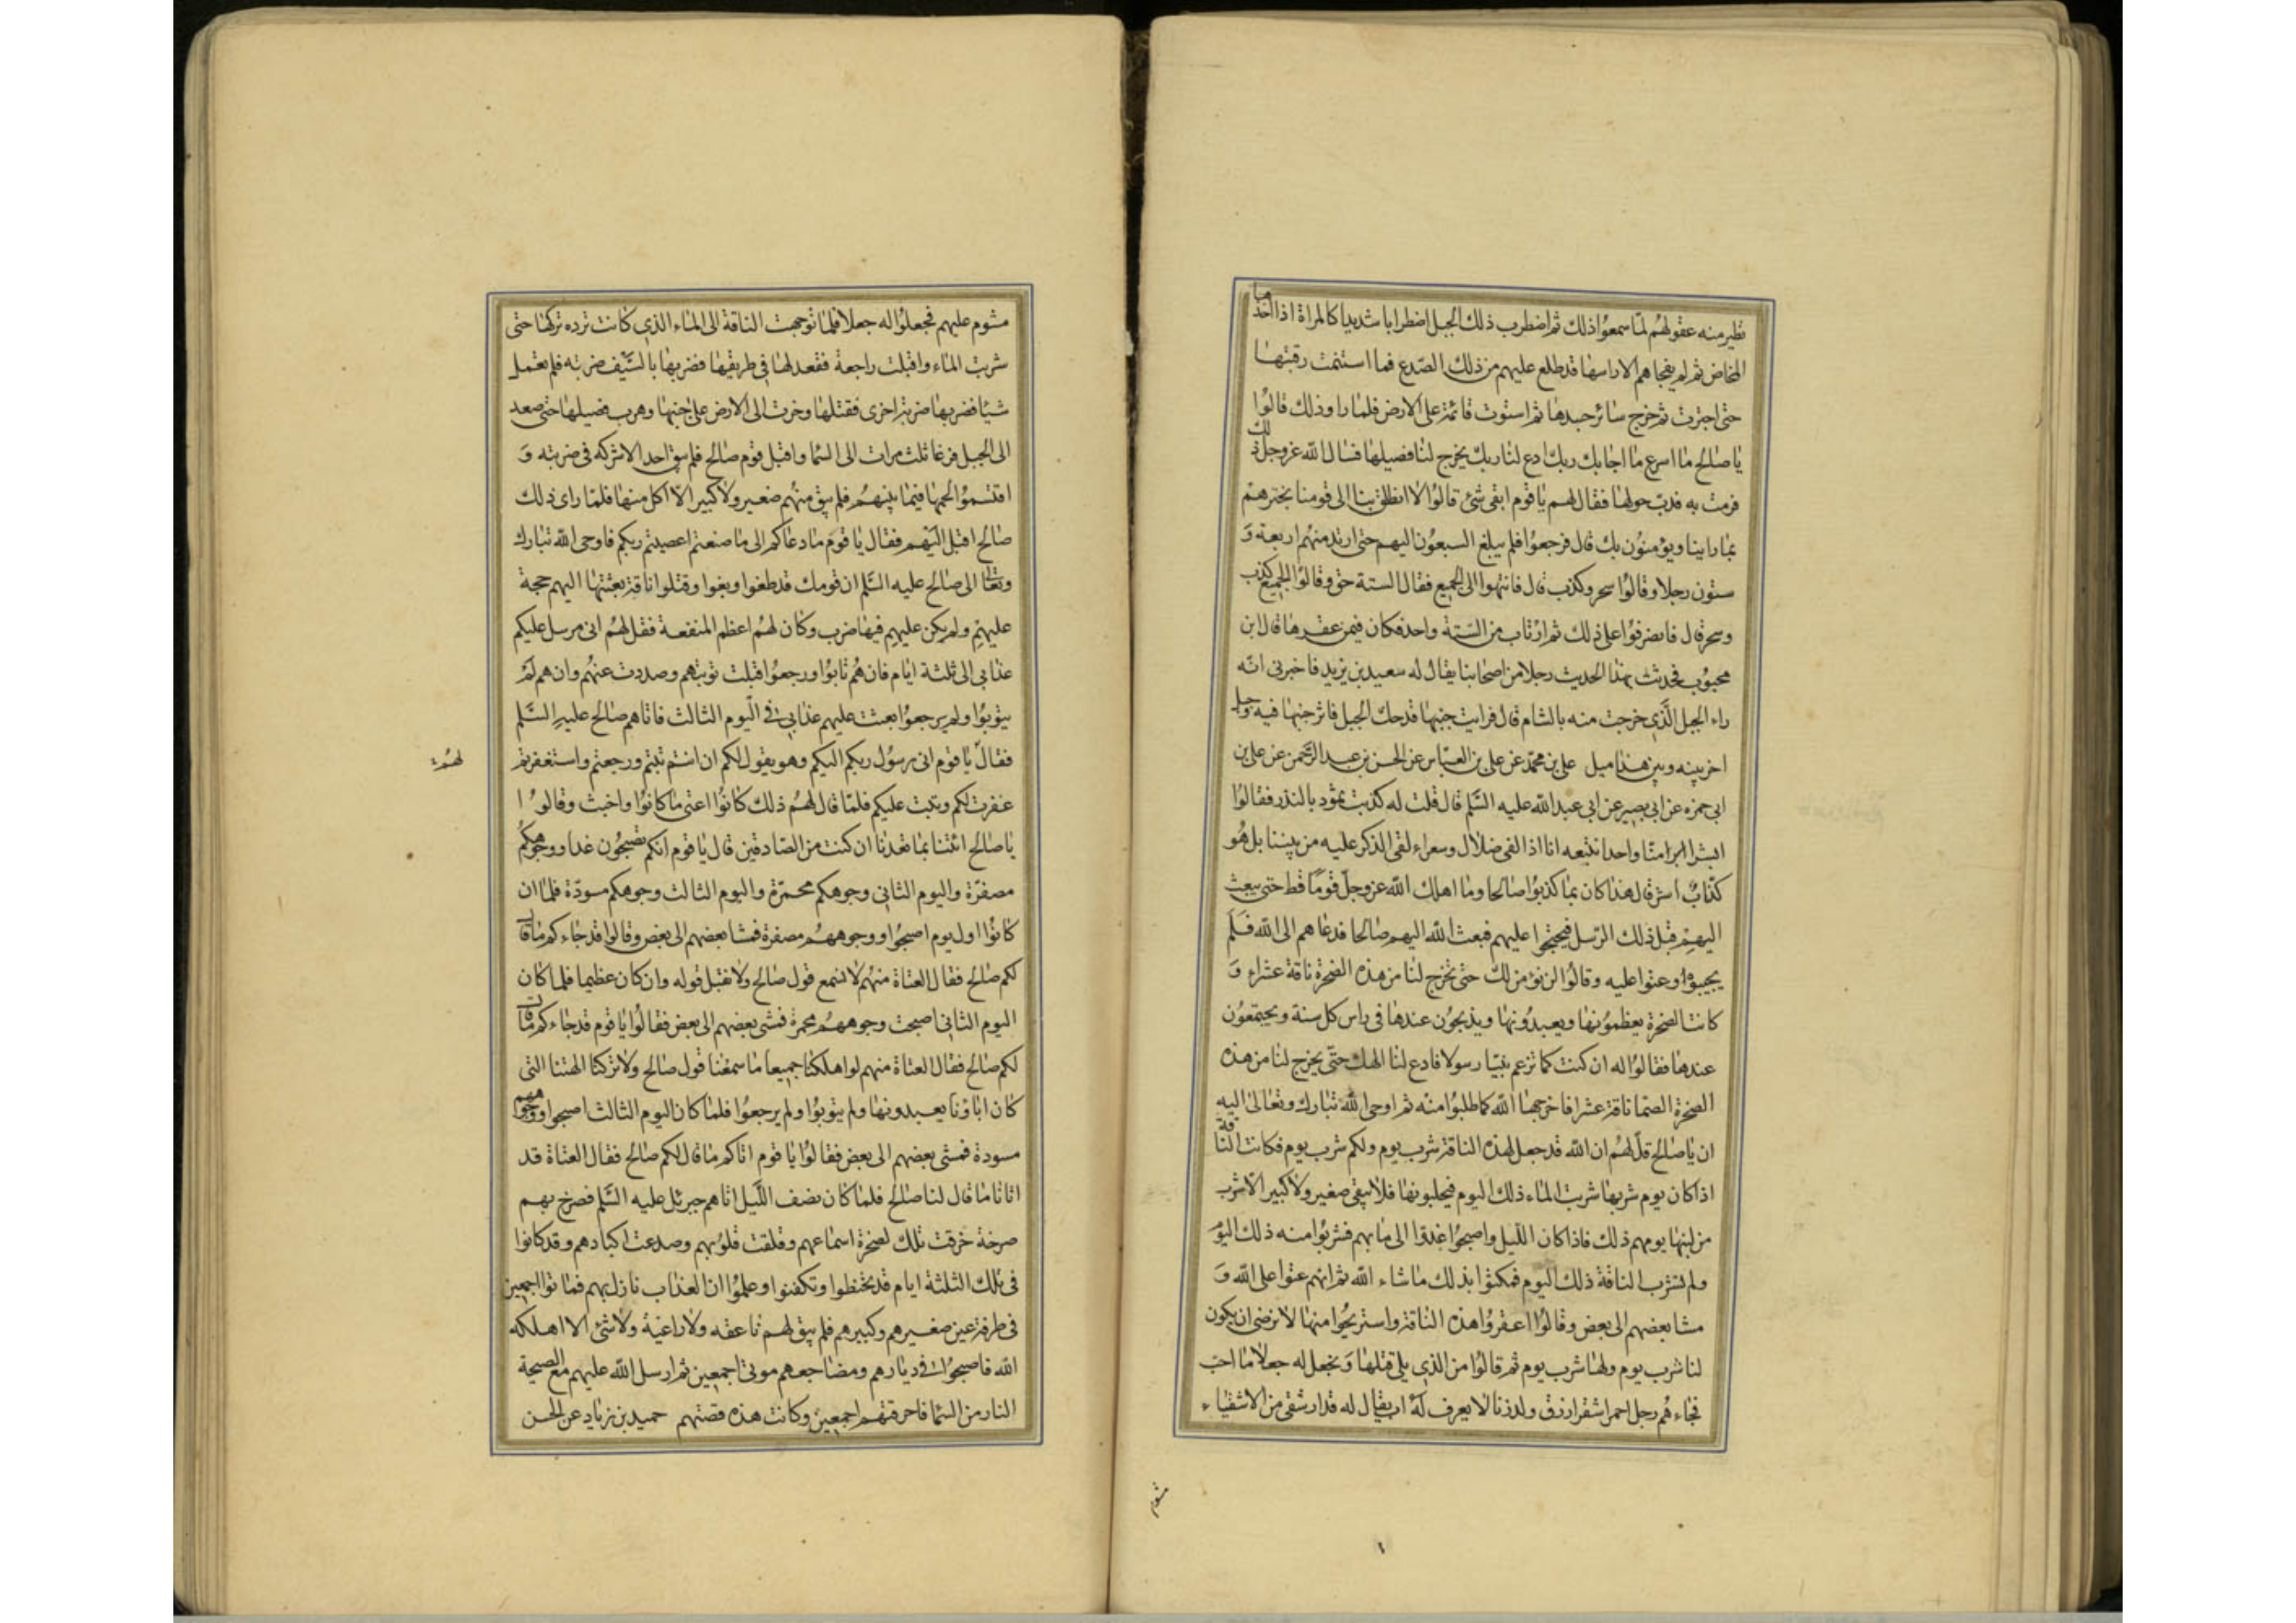 تطير منه عقولهم لما سمعوا ذلك ثم اضطرب ذلك الجبل اضطرابا شديدا كالمراة اذا اخذها
المخاض ثم لم يفجاهم الا راسها قد طلع عليهم من ذلك الصدع فما استتمت رقبتها
حتى اجترت ثم خرج سائر جسدها ثم استوت قائمة على الارض فلما راوا ذلك قالوا
يا صالح ما اسرع ما اجابك ربك ادع لنا ربك يخرج لنا فصيلها فسال الله عز وجل ذلك
فرمت به فدب حولها فقال لهم يا قوم ابقى شئ قالوا لا انطلق بنا الى قومنا نخبرهم
بما راينا ويؤمنون بك قال فرجعوا فلم يبلغ السبعون اليهم حتى ارتد منهم اربعة و
ستون رجلا وقالوا سحر وكذب قال فانتهوا الى الجميع فقال الستة حق وقال الجميع كذب
وسحر قال فانصرفوا على ذلك ثم ارتاب من الستة واحد فكان فيمن عقرها قال ابن
محبوب فحدثت بهذا الحديث رجلا من اصحابنا يقال له سعيد بن يزيد فاخبرنى انه
راء الجبل الذى خرجت منه بالشام قال فرايت جنبها قد حك الجبل فاثر جنبها فيه وجبل
اخر بينه وبين هذا ميل على بن محمد عن على بن العباس عن الحسن بن عبد الرحمن عن على بن
ابى حمزه عن ابى بصير عن ابى عبد الله عليه السلم قال قلت له كذبت ثمود بالنذر فقالوا
ابشرا منا واحدا نتبعه انا اذا لفى ضلال وسعر اءلقى الذكر عليه من بيننا بل هو
كذاب اشر قال هذا كان بما كذبوا صالحا وما اهلك الله عز وجل قوما قط حتى يبعث
اليهم قبل ذلك الرسل فيحتجوا عليهم فبعث الله اليهم صالحا فدعاهم الى الله فلم
يجيبوه وعتوا عليه وقالوا لن نؤمن لك حتى تخرج لنا من هذه الصخرة ناقة عشراء و
كانت الصخرة يعظمونها ويعبدونها ويذبحون عندها فى راس كل سنة ويجتمعون
عندها فقالوا له ان كنت كما تزعم نبيا رسولا فادع لنا الهك حتى يخرج لنا من هذه
الصخرة الصما ناقة عشرا فاخرجها الله كما طلبوا منه ثم اوحى الله تبارك وتعالى اليه
ان يا صالح قل لهم ان الله قد جعل لهذه الناقة شرب يوم ولكم شرب يوم فكانت الناقة
اذا كان يوم شربها شربت الماء ذلك اليوم فيحلبونها فلا يبقى صغير ولا كبير الا شرب
من لبنها يومهم ذلك فاذا كان الليل واصبحوا غدوا الى مائهم فشربوا منه ذلك اليوم
ولم تشرب الناقة ذلك اليوم فمكثوا بذلك ما شاء الله ثم انهم عتوا على الله و
مشا بعضهم الى بعض وقالوا اعقروا هذه الناقة واستريحوا منها لا نرضى ان يكون
لنا شرب يوم ولها شرب يوم ثم قالوا من الذى يلى قتلها ونجعل له جعلا ما احب
فجاءهم رجل احمر اشقر ازرق ولد زنا لا يعرف له اب يقال له قدار شقى من الاشقياء
مشوم
مشوم عليهم فجعلوا له جعلا فلما توجهت الناقة الى الماء الذى كانت ترده تركها حتى
شربت الماء واقبلت راجعة فقعد لها فى طريقها فضربها بالسيف ضربته فلم تعمل
شيئا فضربها ضربة اخرى فقتلها وخرت الى الارض على جنبها وهرب فصيلها حتى صعد
الى الجبل فرغا ثلث مرات الى السما واقبل قوم صالح فلم يبق احد الا شركه فى ضربته و
اقتسموا لحمها فيما بينهم فلم يبق منهم صغير ولا كبير الا اكل منها فلما راى ذلك
صالح اقبل اليهم فقال يا قوم ما دعاكم الى ما صنعتم اعصيتم ربكم فاوحى الله تبارك
وتعالى الى صالح عليه السلم ان قومك قد طغوا وبغوا وقتلوا ناقة بعثتها اليهم حجة
عليهم ولم يكن عليهم فيها ضرب وكان لهم اعظم المنفعة فقل لهم انى مرسل عليكم
عذابى الى ثلثة ايام فان هم تابوا ورجعوا قبلت توبتهم وصددت عنهم وان هم لم
يتوبوا ولم يرجعوا بعثت عليهم عذابى فى اليوم الثالث فاتاهم صالح عليه السلم
فقال يا قوم انى رسول ربكم اليكم وهو يقول لكم ان انتم تبتم ورجعتم واستغفرتم
غفرت لكم وتبت عليكم فلما قال لهم ذلك كانوا اعتى ما كانوا واخبث وقالوا
يا صالح ائتنا بما تعدنا ان كنت من الصادقين قال يا قوم انكم تصبحون غدا ووجوهكم
مصفرة واليوم الثانى وجوهكم محمرة واليوم الثالث وجوهكم مسودة فلما ان
كانوا اول يوم اصبحوا ووجوههم مصفرة فمشا بعضهم الى بعض وقالوا قد جاءكم ما قال
لكم صالح فقال العتاة منهم لا نسمع قول صالح ولا نقبل قوله وان كان عظيما فلما كان
اليوم الثانى اصبحت وجوههم محمرة فمشى بعضهم الى بعض فقالوا يا قوم قد جاءكم ما قال
لكم صالح فقال العتاة منهم لو اهلكنا جميعا ما سمعنا قول صالح ولا تركنا الهتنا التى
كان اباؤنا يعبدونها ولم يتوبوا ولم يرجعوا فلما كان اليوم الثالث اصبحوا ووجوههم
مسودة فمشى بعضهم الى بعض فقالوا يا قوم اتاكم ما قال لكم صالح فقال العتاة قد
اتانا ما قال لنا صالح فلما كان نصف الليل اتاهم جبرئل عليه السلم فصرخ بهم
صرخة خرقت تلك لصخرة اسماعهم وفلقت قلوبهم وصدعت اكبادهم وقد كانوا
فى تلك الثلثة ايام قد تحنطوا وتكفنوا وعلموا ان العذاب نازل بهم فماتوا اجمعين
فى طرفة عين صغيرهم وكبيرهم فلم يبق لهم ناعقه ولا راغية ولا شئ الا اهلكه
الله فاصبحوا فى ديارهم ومضاجعهم موتى اجمعين ثم ارسل الله عليهم مع الصيحة
النار من السما فاحرقتهم اجمعين وكانت هذه قصتهم حميد بن زياد عن الحسن